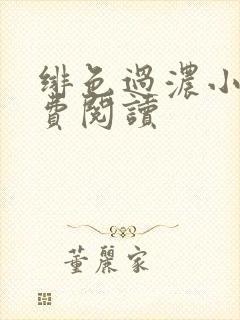 緋色過濃小
費閱讀
董麗家